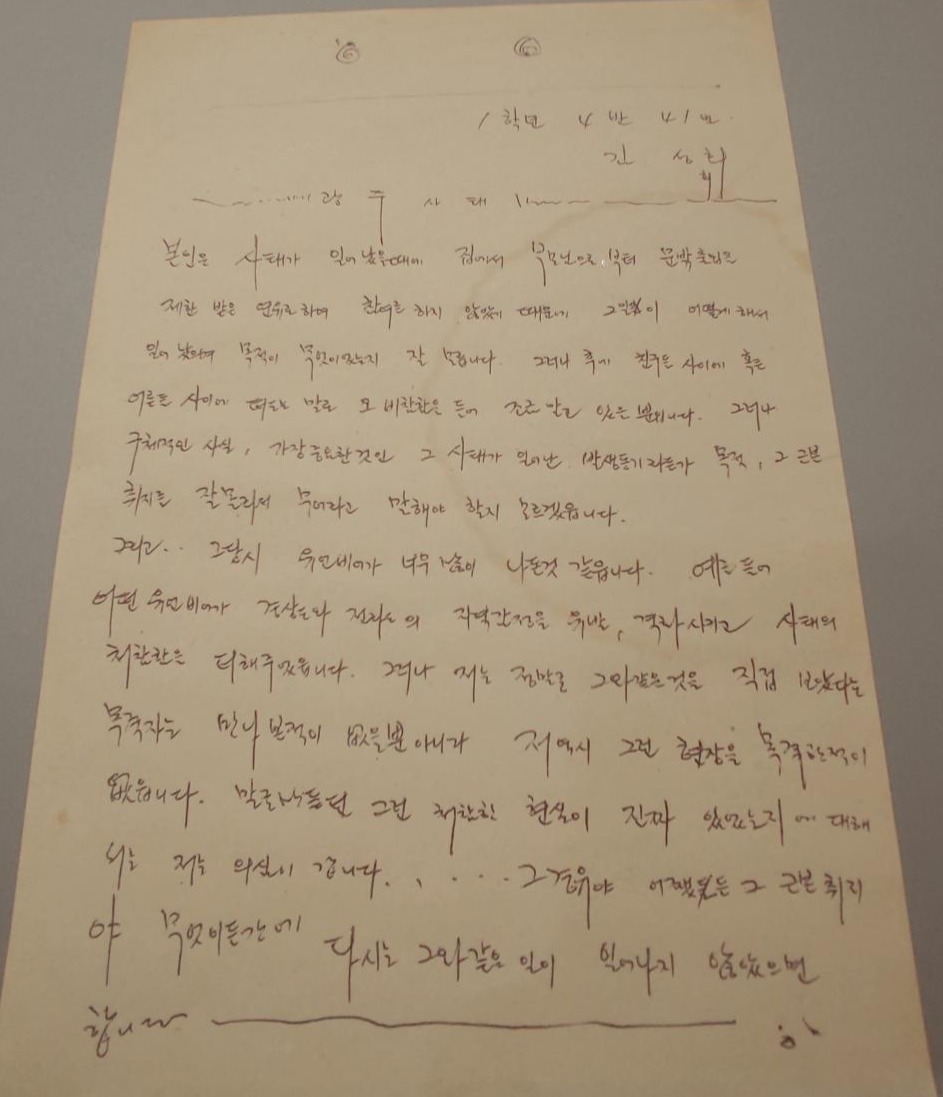 1학년 4반 41번
김 성회
희
광 주 사 태
본인은 사태가 일어 났을때에 집에서 부모님으로부터 문밖출입을
제한 받은 연유로하여 참여를 하지 않았기 때문에 그일이 어떻게해서
일어 났으며 목적이 무엇이었는지 잘 모릅니다. 그러나 후에 친구들 사이에 혹은
어른들 사이에 떠도는 말로 그 비참함을 들어 조금 알고 있을 뿐입니다. 그러나
구체적인 사실, 가장중요한것인 그 사태가 일어난 발생동기라든가 목적, 그 근본
취지를 잘몰라서 무어라고 말해야 할지 모르겠읍니다.
그리고.. 그당시 유언비어가 너무 많이 나돈것 같읍니다. 예를 들어
어떤 유언비어가 경상도와 전라도의 지역감정을 유발, 격화시키고 사태의
처참함을 더해주었읍니다. 그러나 저는 정말로 그와같은것을 직접 보았다는
목격자는 만나 본적이 없을뿐아니라 저역시 그런 현장을 목격한적이
없읍니다. 말로만듣던 그런 처참한 현실이 진짜 있었는지에 대해
서는 저는 의심이 갑니다. . . . . . 그경위야 어쨌든 그 근본취지
야 무엇이든간에 다시는 그와같은 일이 일어나지 않았으면
합니다